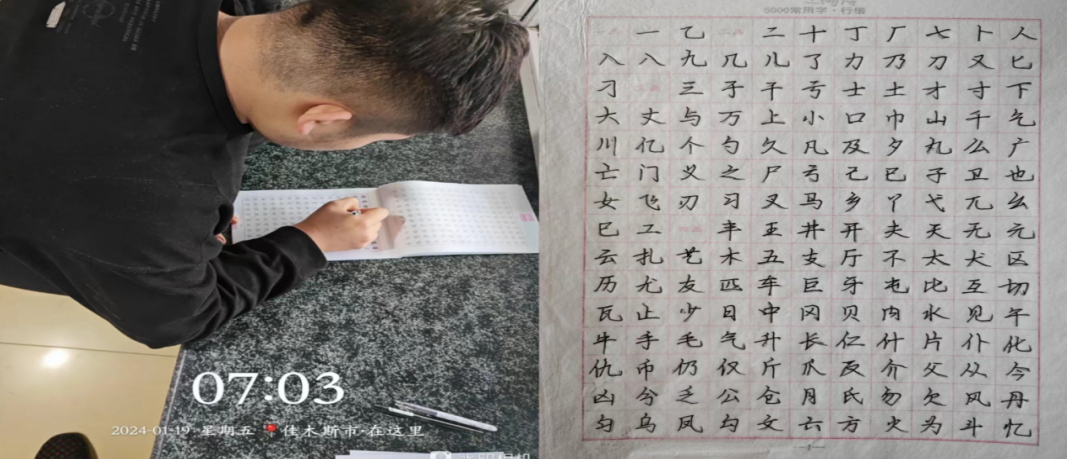 07:03
2024-01-19 星期五 佳木斯市·在这里
5000常用字·行楷
一乙二十丁厂七卜人
入八九几儿了力乃刀又匕
刁三子干亏士土才寸下
大丈与万上小口巾山千乞
川亿个勺久凡及夕丸么广
亡门义之尸弓己已子卫也
女飞刃习叉马乡丫弋兀幺
巳工丰王井开夫天无元
云扎艺木五支厅不太犬区
历尤友匹车巨牙屯比互切
瓦止少日中冈贝内水见午
牛手毛气升长仁什片仆化
仇币仍仅斤爪反介父从今
凶分乏公仓月氏勿欠风丹
匀乌凤勾文六方火为斗忆
1